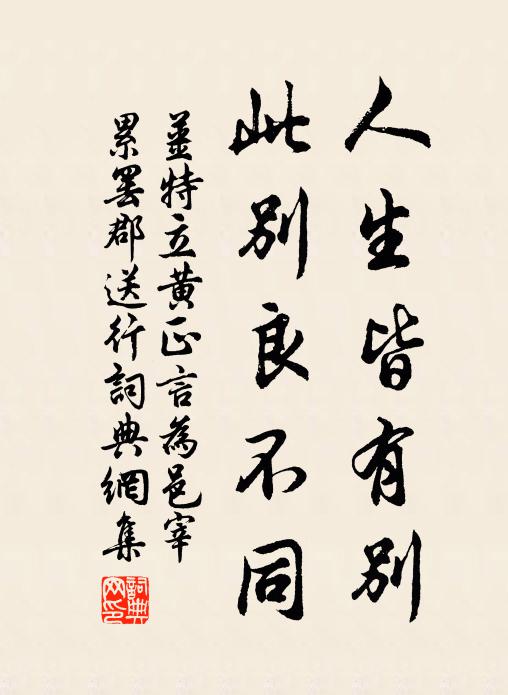 人生皆有别
此别良不同
姜特立黄正言為邑宰
累罢郡送行詞典網集
詞典网印